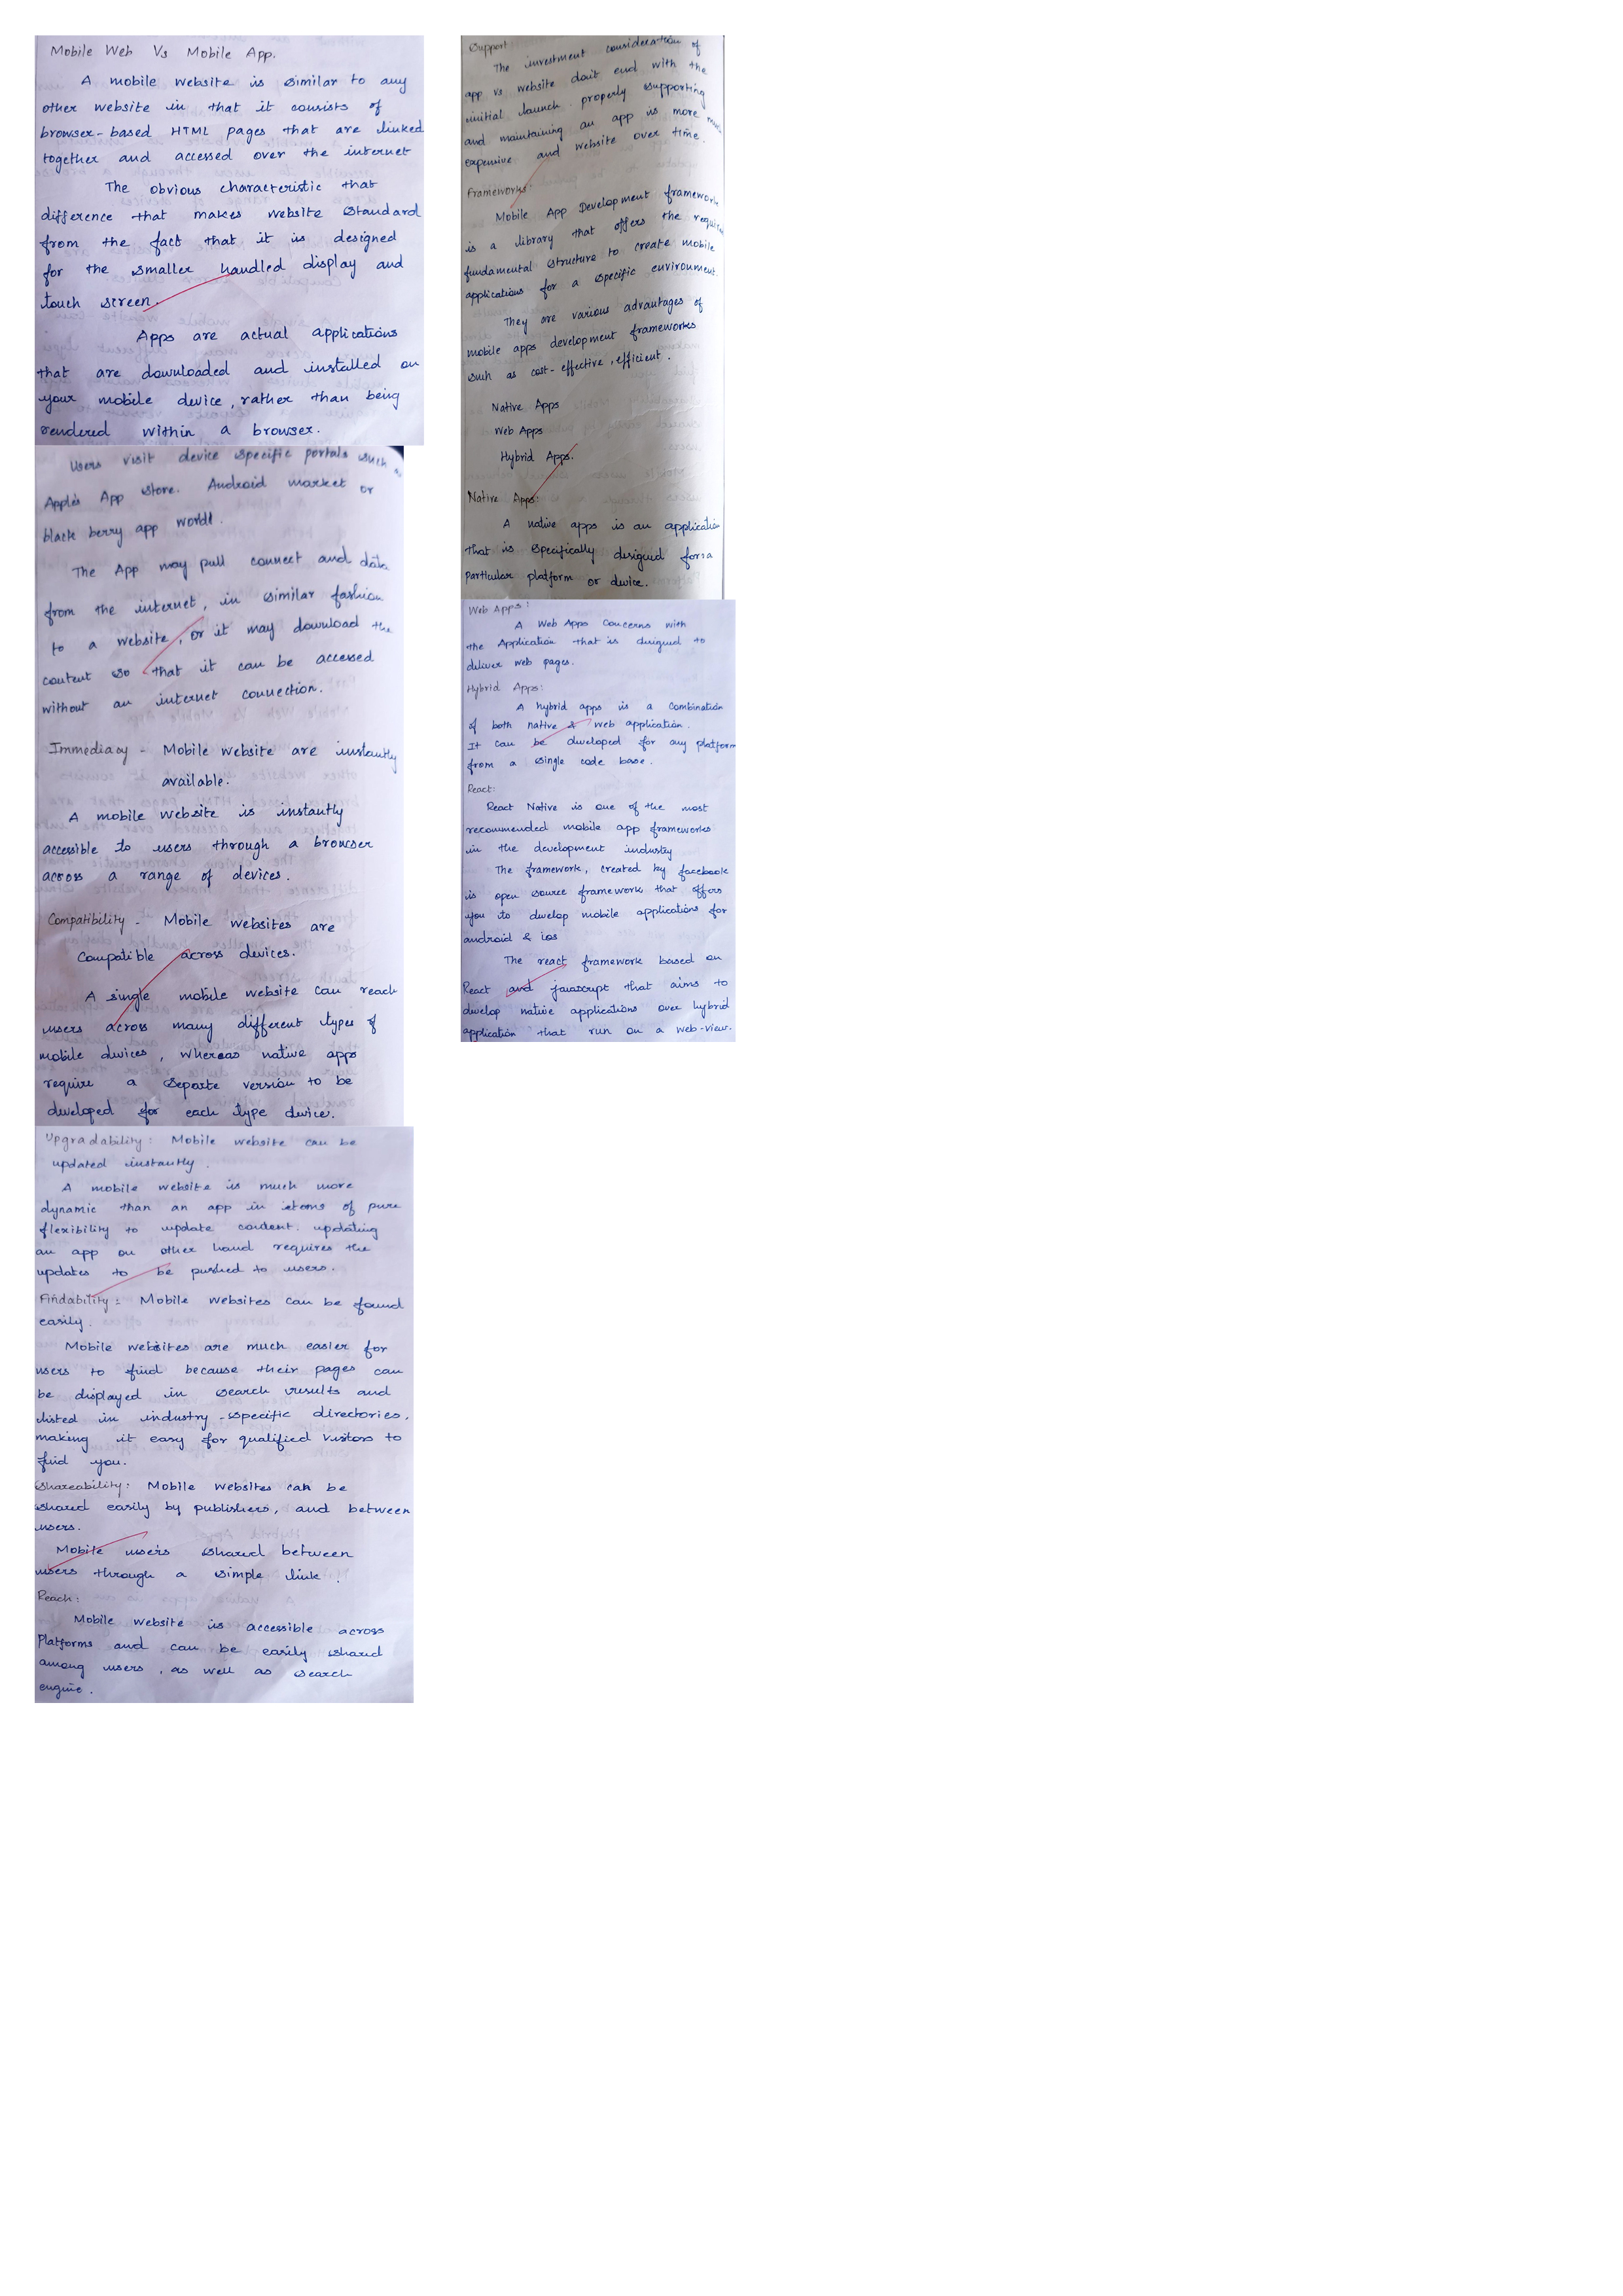 Mobile Web Vs Mobile App.
A mobile website is similar to any
other website in that it consists of
browser-based HTML pages that are linked
together and accessed over the internet
The obvious characteristic that
difference that makes website standard
from the fact that it is designed
for the smaller handled display and
touch screen.
Apps are actual applications
that are downloaded and installed on
your mobile device, rather than being
rendered within a browser.
Users visit device specific portals such as
Apple's App store. Android market or
black berry app world.
The App may pull connect and data
from the internet, in similar fashion
to a website, or it may download the
content so that it can be accessed
without an internet connection.
Immediacy - Mobile website are instantly
available.
A mobile website is instantly
accessible to users through a browser
across a range of devices.
Compatibility - Mobile websites are
Compatible across devices.
A single mobile website can reach
users across many different types of
mobile devices, whereas native apps
require a separte version to be
developed for each type device.
Upgradability: Mobile website can be
updated instantly.
A mobile website is much more
dynamic than an app in terms of pure
flexibility to update content. updating
an app on other hand requires the
updates to be pushed to users.
Findability: Mobile websites can be found
easily.
Mobile websites are much easier for
users to find because their pages can
be displayed in search results and
listed in industry-specific directories,
making it easy for qualified visitors to
find you.
Shareability: Mobile websites can be
shared easily by publishers, and between
users.
Mobile users shared between
users through a simple link.
Reach:
Mobile website is accessible across
Platforms and can be easily shared
among users, as well as search
engine.
Support
The investment consideration of
app vs website don't end with the
initial launch. properly supporting
and maintaining an app is more much
expensive and website over time.
Frameworks:
Mobile App Development framework
is a library that offers the required
fundamental structure to create mobile
applications for a specific environment.
They are various advantages of
mobile apps development frameworks
such as cost-effective, efficient.
Native Apps
Web Apps
Hybrid Apps.
Native Apps:
A native apps is an application
that is specifically designed for a
particular platform or device.
Web Apps:
A Web Apps Concerns with
the Application that is designed to
deliver web pages.
Hybrid Apps:
A hybrid apps is a combination
of both native & web application.
It can be developed for any platform
from a single code base.
React:
React Native is one of the most
recommended mobile app frameworks
in the development industry
The framework, created by facebook
is open source framework that offers
you to develop mobile applications for
android & ios
The react framework based on
React and javascript that aims to
develop native applications over hybrid
application that run on a web-view.